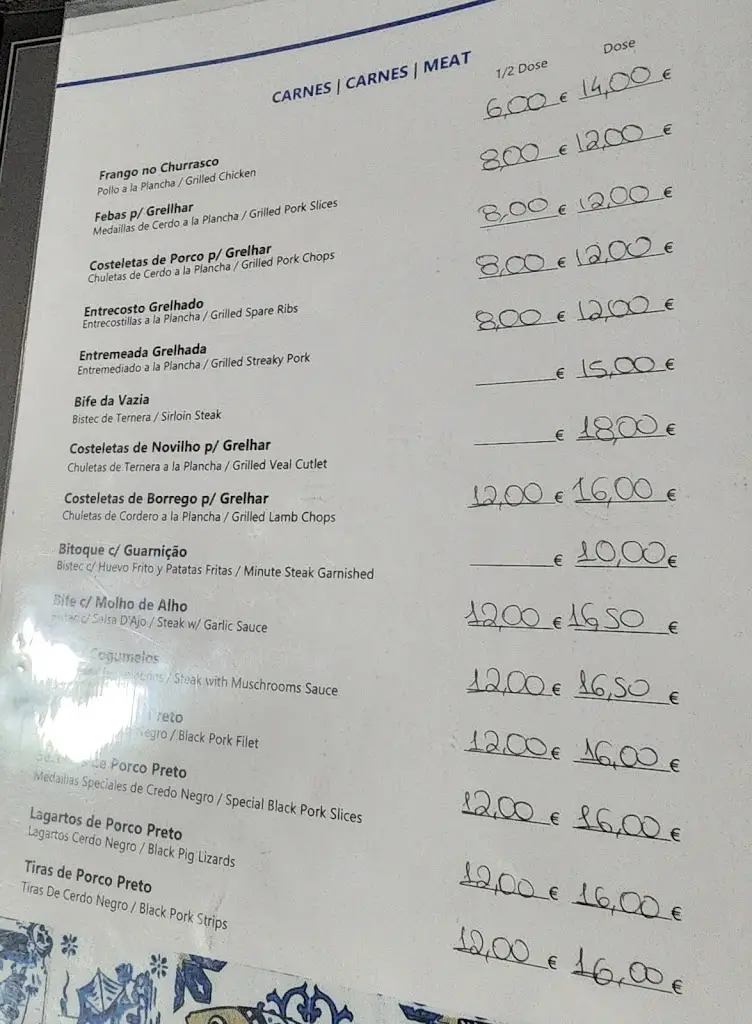 CARNES | CARNES | MEAT 1/2 Dose Dose
Frango no Churrasco 6,00 € 14,00 €
Pollo a la Plancha / Grilled Chicken
Febas p/ Grellhar 8,00 € 12,00 €
Medaillas de Cerdo a la Plancha / Grilled Pork Slices
Costeletas de Porco p/ Grelhar 8,00 € 12,00 €
Chuletas de Cerdo a la Plancha / Grilled Pork Chops
Entrecosto Grelhado 8,00 € 12,00 €
Entrecostillas a la Plancha / Grilled Spare Ribs
Entremeada Grelhada 8,00 € 12,00 €
Entremediado a la Plancha / Grilled Streaky Pork
Bife da Vazia € 15,00 €
Bistec de Ternera / Sirloin Steak
Costeletas de Novilho p/ Grelhar € 18,00 €
Chuletas de Ternera a la Plancha / Grilled Veal Cutlet
Costeletas de Borrego p/ Grelhar 12,00 € 16,00 €
Chuletas de Cordero a la Plancha / Grilled Lamb Chops
Bitoque c/ Guarnição € 10,00 €
Bistec c/ Huevo Frito y Patatas Fritas / Minute Steak Garnished
Bife c/ Molho de Alho 12,00 € 16,50 €
c/ Salsa D'Ajo / Steak w/ Garlic Sauce
Cogumelos 12,00 € 16,50 €
/ Steak with Muschrooms Sauce
Preto 12,00 € 16,00 €
Negro / Black Pork Filet
de Porco Preto 12,00 € 16,00 €
Medaillas Speciales de Credo Negro / Special Black Pork Slices
Lagartos de Porco Preto 12,00 € 16,00 €
Lagartos Cerdo Negro / Black Pig Lizards
Tiras de Porco Preto 12,00 € 16,00 €
Tiras De Cerdo Negro / Black Pork Strips